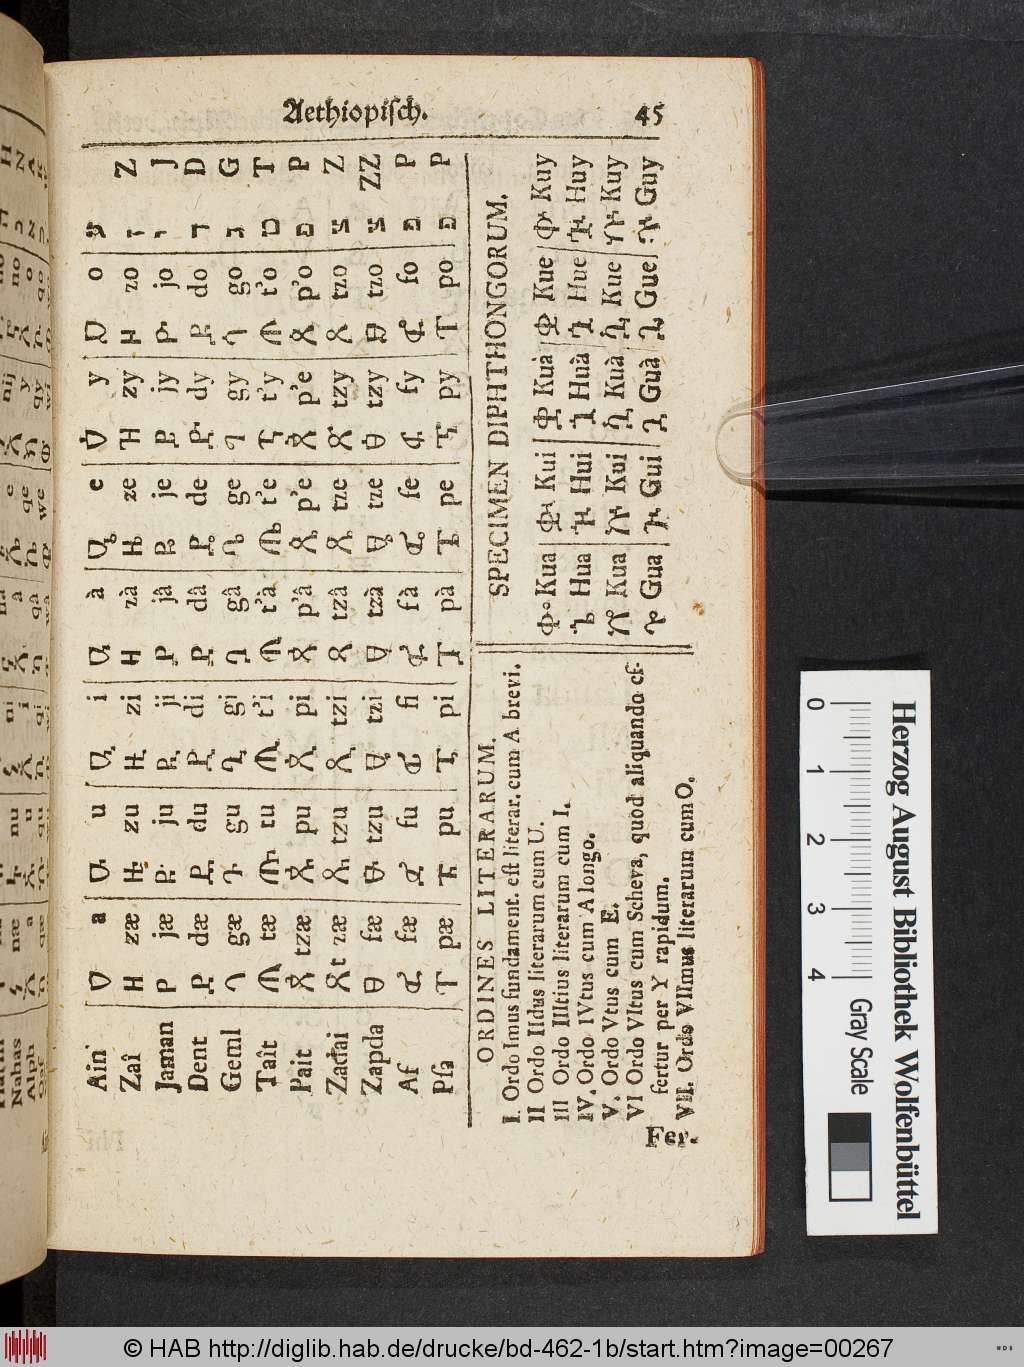 Aethiopiſch. 45
Ain ዐ a ዑ u ዒ i ዓ à ዔ e ዕ y ዖ o ע
Zaî ዘ zæ ዙ zu ዚ zi ዛ zà ዜ ze ዝ zy ዞ zo ז Z
Jaman የ jæ ዩ ju ዪ ji ያ jâ ዬ je ይ jy ዮ jo י J
Dent ደ dæ ዱ du ዲ di ዳ dâ ዴ de ድ dy ዶ do ד D
Geml ገ gæ ጉ gu ጊ gi ጋ gâ ጌ ge ግ gy ጎ go ג G
Taît ጠ tæ ጡ tu ጢ t'i ጣ t'à ጤ t'e ጥ t'y ጦ t'o ט T
Pait ጰ tzæ ጱ pu ጲ pi ጳ p'â ጴ p'e ጵ p'e ጶ p'o פ P
Zadai ጸ t zæ ጹ tzu ጺ tzi ጻ tzâ ጼ tze ጽ tzy ጾ tzo צ Z
Zapda ፀ fæ ፁ tzu ፂ tzi ፃ tzà ፄ tze ፅ tzy ፆ tzo צ ZZ
Af ፈ fæ ፉ fu ፊ fi ፋ fà ፌ fe ፍ fy ፎ fo פ P
Pſa ፐ pæ ፑ pu ፒ pi ፓ pà ፔ pe ፕ py ፖ po פ P
ORDINES LITERARUM.
I. Ordo Imus fundament. eſt literar. cum A brevi.
II Ordo IIdus literarum cum U.
III Ordo IIItius literarum cum I.
IV. Ordo IVtus cum A longo.
V. Ordo Vtus cum E.
VI Ordo VItus cum Scheva, quod aliquando ef-
fertur per Y rapidum.
VII. Ordo VIImus literarum cum O.
SPECIMEN DIPHTHONGORUM.
ቈ Kua ቊ Kui ቋ Kuà ቌ Kue ቍ Kuy
ኈ Hua ኊ Hui ኋ Huà ኌ Hue ኍ Huy
ኰ Kua ኲ Kui ኳ Kuà ኴ Kue ኵ Kuy
ጐ Gua ጒ Gui ጓ Guà ጔ Gue ጕ Guy
Fer.
Nahas
Alph
0 1 2 3 4
Gray Scale
Herzog August Bibliothek Wolfenbüttel
© HAB http://diglib.hab.de/drucke/bd-462-1b/start.htm?image=00267